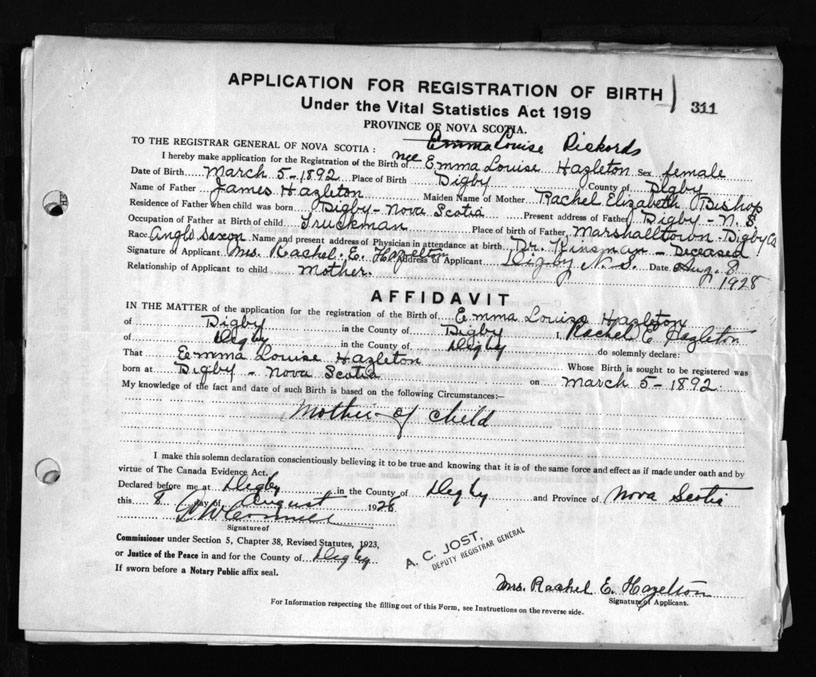 APPLICATION FOR REGISTRATION OF BIRTH
311
Under the Vital Statistics Act 1919
PROVINCE OF NOVA SCOTIA.
Emma Louise Rickords
TO THE REGISTRAR GENERAL OF NOVA SCOTIA:
I hereby make application for the Registration of the Birth of nee Emma Louise Hazleton Sex female
Date of Birth March 5-1892 Place of Birth Digby County of Digby
Name of Father James Hazleton Maiden Name of Mother Rachel Elizabeth Bishop
Residence of Father when child was born Digby - Nova Scotia Present address of Father Digby - N. S.
Occupation of Father at Birth of child Truckman Place of birth of Father Marshalltown - Digby Co
Race Anglo Saxon Name and present address of Physician in attendance at birth Dr. Kinsman - Deceased
Signature of Applicant Mrs. Rachel. E. Hazelton Address of Applicant Digby N. S. Date Aug. 8
1928
Relationship of Applicant to child mother.
AFFIDAVIT
IN THE MATTER of the application for the registration of the Birth of Emma Louise Hazleton
of Digby in the County of Digby I, Rachel E Hazleton
of Digby in the County of Digby do solemnly declare:
That Emma Louise Hazleton Whose Birth is sought to be registered was
born at Digby - Nova Scotia on March 5-1892
My knowledge of the fact and date of such Birth is based on the following Circumstances:—
Mother of child
I make this solemn declaration conscientiously believing it to be true and knowing that it is of the same force and effect as if made under oath and by
virtue of The Canada Evidence Act.
Declared before me at Digby in the County of Digby and Province of Nova Scotia
this 8 day of August 1928
Signature of
Commissioner under Section 5, Chapter 38, Revised Statutes, 1923,
or Justice of the Peace in and for the County of Digby
If sworn before a Notary Public affix seal.
A. C. JOST,
DEPUTY REGISTRAR GENERAL
Mrs. Rachel E. Hazelton
Signature of Applicant.
For Information respecting the filling out of this Form, see Instructions on the reverse side.